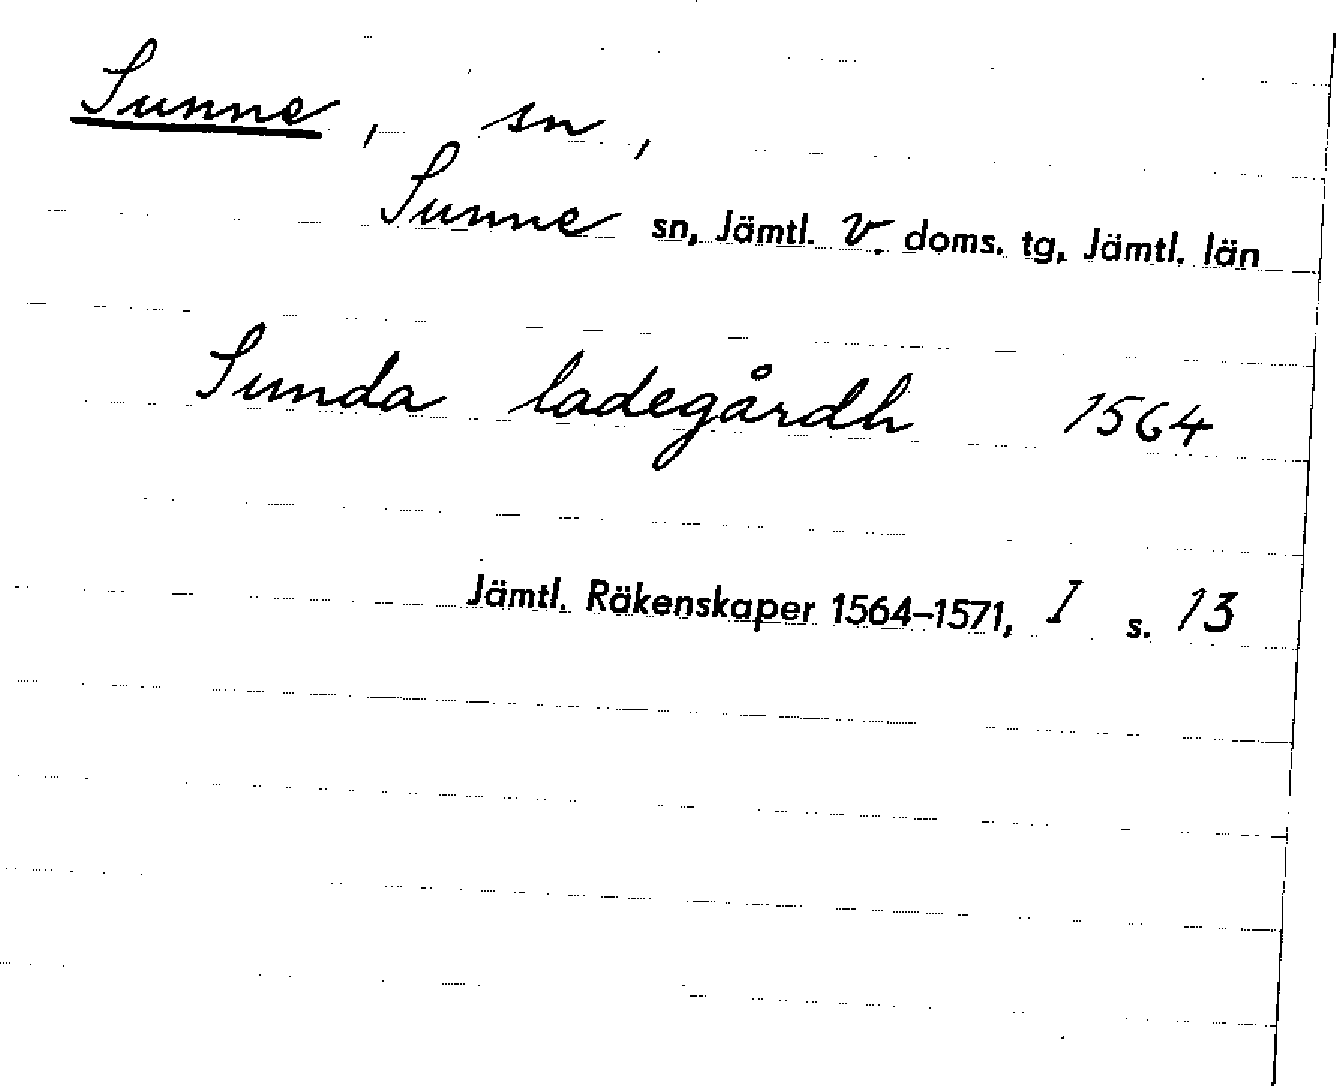 Sunne, sn,
Sunne sn, Jämtl. V. doms. tg, Jämtl. län
Sunda ladegårdh 1564
Jämtl. Räkenskaper 1564–1571, I s. 13